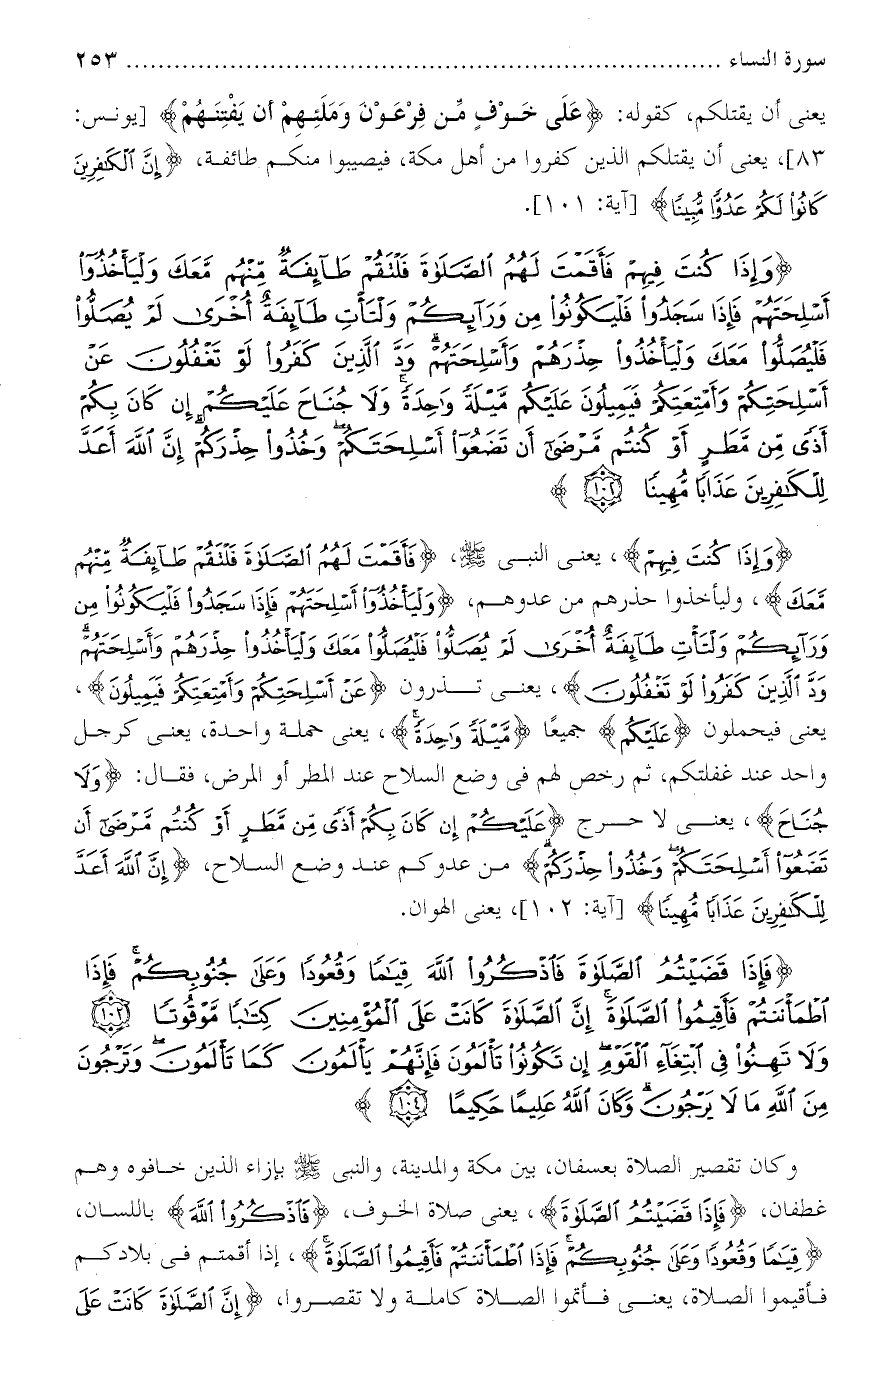 سورة النساء ................................................................ ٢٥٣
يعنى أن يقتلكم، كقوله: ﴿عَلَى خَوْفٍ مِّن فِرْعَوْنَ وَمَلَئِهِمْ أَن يَفْتِنَهُمْ﴾ [يونس:
٨٣]، يعنى أن يقتلكم الذين كفروا من أهل مكة، فيصيبوا منكم طائفة، ﴿إِنَّ ٱلْكَٰفِرِينَ
كَانُوا۟ لَكُمْ عَدُوًّا مُّبِينًا﴾ [آية: ١٠١].
﴿وَإِذَا كُنتَ فِيهِمْ فَأَقَمْتَ لَهُمُ ٱلصَّلَوٰةَ فَلْتَقُمْ طَآئِفَةٌ مِّنْهُم مَّعَكَ وَلْيَأْخُذُوٓا۟
أَسْلِحَتَهُمْ فَإِذَا سَجَدُوا۟ فَلْيَكُونُوا۟ مِن وَرَآئِكُمْ وَلْتَأْتِ طَآئِفَةٌ أُخْرَىٰ لَمْ يُصَلُّوا۟
فَلْيُصَلُّوا۟ مَعَكَ وَلْيَأْخُذُوا۟ حِذْرَهُمْ وَأَسْلِحَتَهُمْ ۗ وَدَّ ٱلَّذِينَ كَفَرُوا۟ لَوْ تَغْفُلُونَ عَنْ
أَسْلِحَتِكُمْ وَأَمْتِعَتِكُمْ فَيَمِيلُونَ عَلَيْكُم مَّيْلَةً وَٰحِدَةً ۚ وَلَا جُنَاحَ عَلَيْكُمْ إِن كَانَ بِكُمْ
أَذًى مِّن مَّطَرٍ أَوْ كُنتُم مَّرْضَىٰٓ أَن تَضَعُوٓا۟ أَسْلِحَتَكُمْ ۖ وَخُذُوا۟ حِذْرَكُمْ ۗ إِنَّ ٱللَّهَ أَعَدَّ
لِلْكَٰفِرِينَ عَذَابًا مُّهِينًا ١٠٢ ﴾
﴿وَإِذَا كُنتَ فِيهِمْ﴾، يعنى النبى ﷺ، ﴿فَأَقَمْتَ لَهُمُ ٱلصَّلَوٰةَ فَلْتَقُمْ طَآئِفَةٌ مِّنْهُم
مَّعَكَ﴾، وليأخذوا حذرهم من عدوهم، ﴿وَلْيَأْخُذُوٓا۟ أَسْلِحَتَهُمْ فَإِذَا سَجَدُوا۟ فَلْيَكُونُوا۟ مِن
وَرَآئِكُمْ وَلْتَأْتِ طَآئِفَةٌ أُخْرَىٰ لَمْ يُصَلُّوا۟ فَلْيُصَلُّوا۟ مَعَكَ وَلْيَأْخُذُوا۟ حِذْرَهُمْ وَأَسْلِحَتَهُمْ ۗ
وَدَّ ٱلَّذِينَ كَفَرُوا۟ لَوْ تَغْفُلُونَ﴾، يعنى تذرون ﴿عَنْ أَسْلِحَتِكُمْ وَأَمْتِعَتِكُمْ فَيَمِيلُونَ﴾،
يعنى فيحملون ﴿عَلَيْكُم﴾ جميعًا ﴿مَّيْلَةً وَٰحِدَةً ۚ﴾، يعنى حملة واحدة، يعنى كرجل
واحد عند غفلتكم، ثم رخص لهم فى وضع السلاح عند المطر أو المرض، فقال: ﴿وَلَا
جُنَاحَ﴾، يعنى لا حرج ﴿عَلَيْكُمْ إِن كَانَ بِكُمْ أَذًى مِّن مَّطَرٍ أَوْ كُنتُم مَّرْضَىٰٓ أَن
تَضَعُوٓا۟ أَسْلِحَتَكُمْ ۖ وَخُذُوا۟ حِذْرَكُمْ ۗ﴾ من عدوكم عند وضع السلاح، ﴿إِنَّ ٱللَّهَ أَعَدَّ
لِلْكَٰفِرِينَ عَذَابًا مُّهِينًا﴾ [آية: ١٠٢]، يعنى الهوان.
﴿فَإِذَا قَضَيْتُمُ ٱلصَّلَوٰةَ فَٱذْكُرُوا۟ ٱللَّهَ قِيَٰمًا وَقُعُودًا وَعَلَىٰ جُنُوبِكُمْ ۚ فَإِذَا
ٱطْمَأْنَنتُمْ فَأَقِيمُوا۟ ٱلصَّلَوٰةَ ۚ إِنَّ ٱلصَّلَوٰةَ كَانَتْ عَلَى ٱلْمُؤْمِنِينَ كِتَٰبًا مَّوْقُوتًا ١٠٣
وَلَا تَهِنُوا۟ فِى ٱبْتِغَآءِ ٱلْقَوْمِ ۖ إِن تَكُونُوا۟ تَأْلَمُونَ فَإِنَّهُمْ يَأْلَمُونَ كَمَا تَأْلَمُونَ ۖ وَتَرْجُونَ
مِنَ ٱللَّهِ مَا لَا يَرْجُونَ ۗ وَكَانَ ٱللَّهُ عَلِيمًا حَكِيمًا ١٠٤ ﴾
وكان تقصير الصلاة بعسفان، بين مكة والمدينة، والنبى ﷺ بإزاء الذين خافوه وهم
غطفان، ﴿فَإِذَا قَضَيْتُمُ ٱلصَّلَوٰةَ﴾، يعنى صلاة الخوف، ﴿فَٱذْكُرُوا۟ ٱللَّهَ﴾ باللسان،
﴿قِيَٰمًا وَقُعُودًا وَعَلَىٰ جُنُوبِكُمْ ۚ فَإِذَا ٱطْمَأْنَنتُمْ فَأَقِيمُوا۟ ٱلصَّلَوٰةَ ۚ﴾، إذا أقمتم فى بلادكم
فأقيموا الصلاة، يعنى فأتموا الصلاة كاملة ولا تقصروا، ﴿إِنَّ ٱلصَّلَوٰةَ كَانَتْ عَلَى